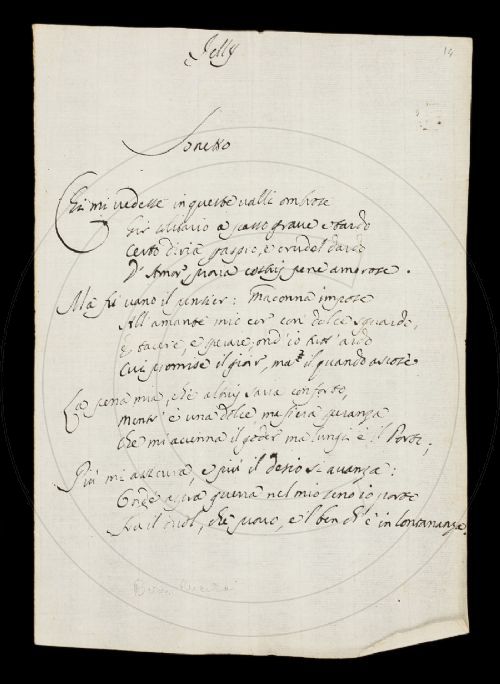 Jelly
14
Sonetto
Chi mi vedesse in queste valli ombrose
Gir solitario a passo grave e tardo
Certo diria gaspio, e crudel dardo
D'Amor, prova costui pene amorose.
Ma fu vano il pensier: Madonna impose
All'amante mio cor con dolce sguardo,
E tacere, e penare, ond'io tutt'ardo
Cui promise il gioir, ma il quando ascose
La pena mia, ch'è altrui saria conforto,
Mentr'è una dolce mia fiera speranza
Che mi accenna il goder ma lungi è il Porto;
Più mi assicura, e più il desio s'avanza:
Ond'è aspra guerra nel mio seno io porto
Fra il duol, che provo, e 'l ben ch'è in lontananza.